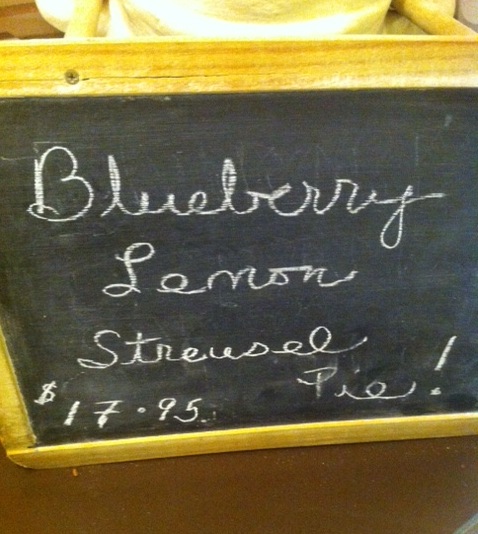 Blueberry
Lemon
Streusel
Pie!
$17.95